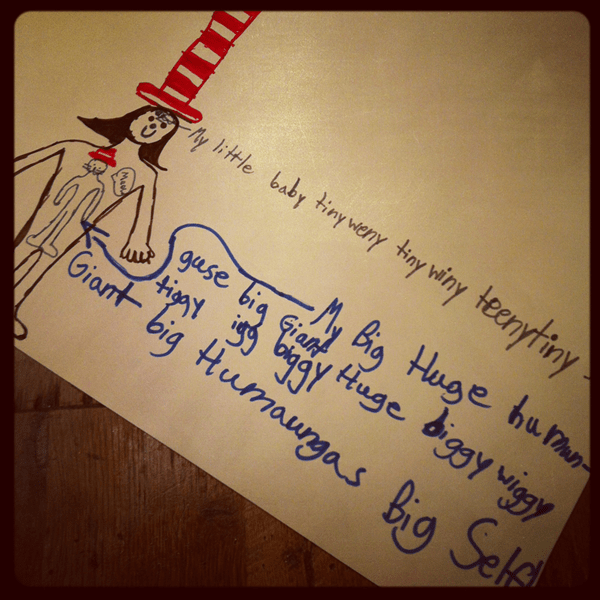 My little baby tiny weny tiny winy teenytiny -
My Big Huge humun-
guse big Giant
tiggy igg biggy Huge biggy wiggy
Giant big Humaungas Big Self!